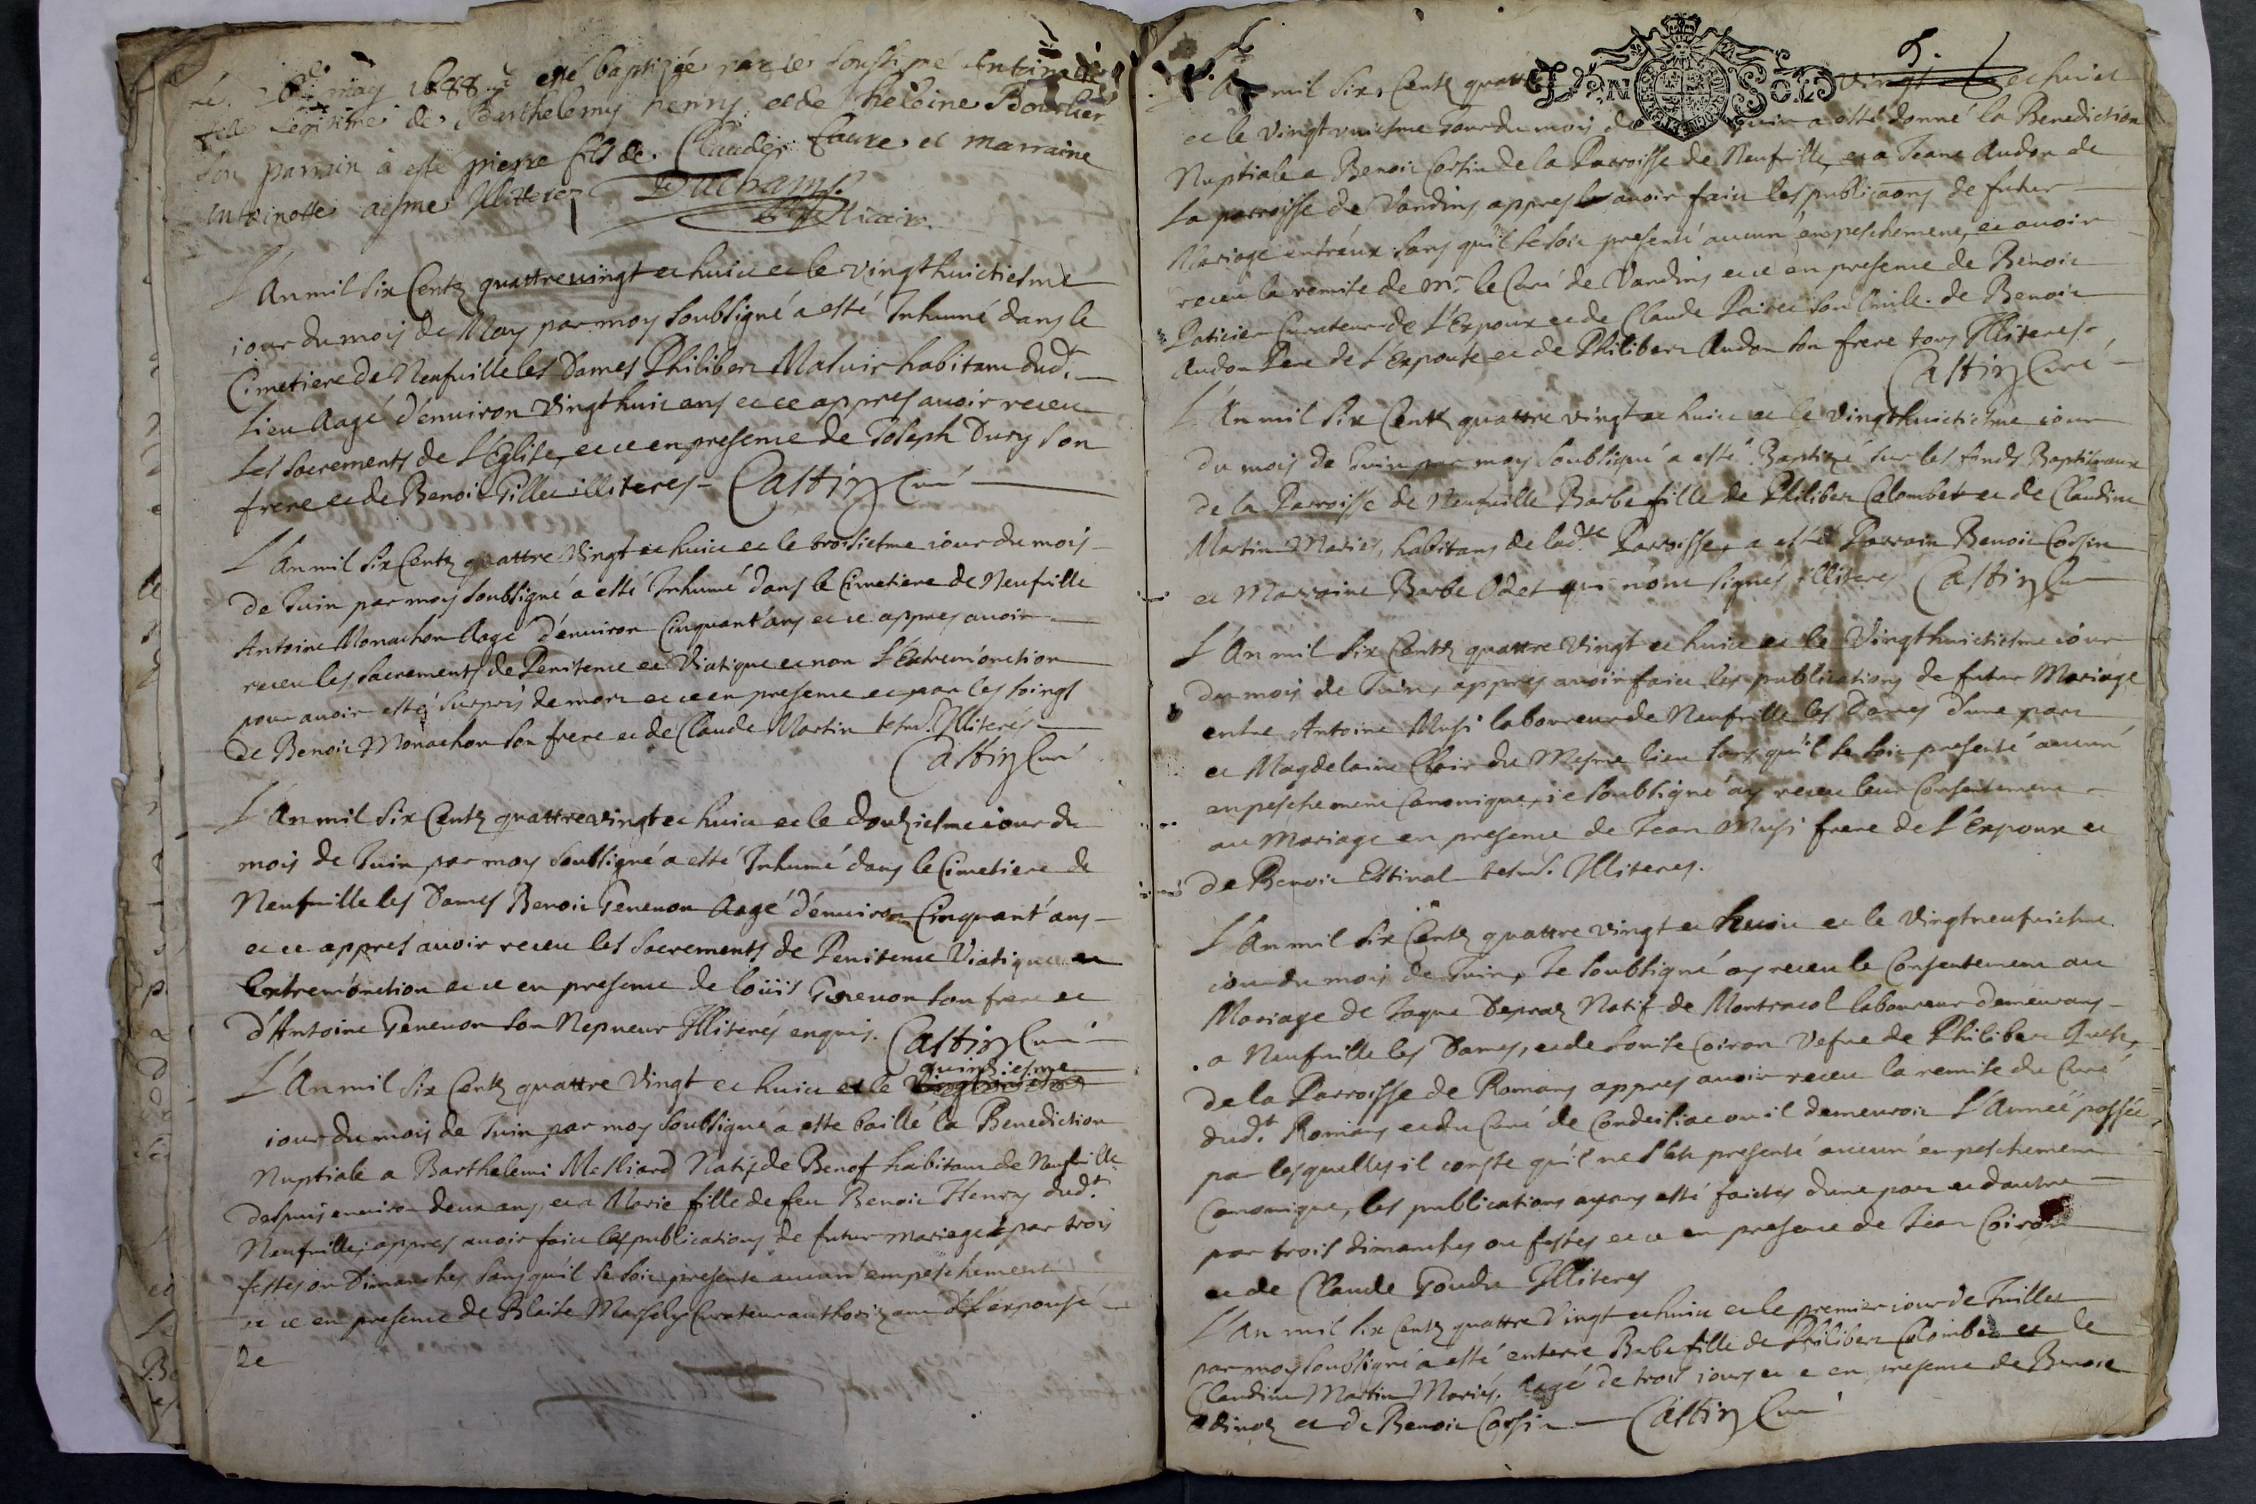 may 1688 a esté baptizée par ie soussigné Antoinette
fille Legitime de Barthelemy henry et de heleine Bourlier
son parrain à esté pierre fils de Claude faure et marraine
Antoinotte aisme Illiterez Duchamp
Vicaire
L'An mil six Centz quattre vingt et huict et le vingthuictiesme
iour du mois de May par moy soubsigné a esté Inhumé dans le
Cimetiere de Neufville les Dames Philibert Maluir habitant dud.t
Lieu Aagé d'enuiron vingt huict ans et ce appres auoir receu
Les sacrements de L'Eglise, et ce en presence de Joseph Dury son
frere et de Benoit Gillet illiteres Castin Curé
L'An mil six Centz quattre vingt et huict et le troisiesme iour du mois
de Juin par moy soubsigné a esté Inhumé dans le Cimetiere de Neufville
Antoine Monachon Aagé d'enuiron Cinquant'ans et ce appres auoir
receu les sacrements de Penitence et Viatique et non L'Extremonction
pour auoir esté surpris de mort et ce en presence et par les soings
de Benoit Monachon son frere et de Claude Martin tesm.s Illiterés
Castin Curé
L'An mil six Centz quattre vingt et huict et le Douziesme iour du
mois de Juin par moy soubsigné a esté Inhumé dans le Cimetiere de
Neufville les Dames Benoit Geneuon Aagé d'enuiron Cinquant'ans
et ce appres auoir receu les sacrements de Penitence Viatique et
Extremonction et ce en presence de loüis Geneuon son frere et
d'Antoine Geneuon son Nepueur Illiterés enquis. Castin Curé
quinziesme
L'An mil six Centz quattre vingt et huict et le
iour du mois de Juin par moy soubsigné a esté baillé la Benediction
Nuptiale a Barthelemi Malliard Natif de Benof habitant de Neufville
despuis enuiron deux ans, et a Marie fille de feu Benoit Henry dud.t
Neufville, appres auoir faict les publications de futur mariage par trois
festes ou Dimanches sans qu'il se soit presenté aucun empeschement
et ce en presence de Blaise Curateur authorizant de L'expouse
de
5.
L'An mil six Centz quattre vingt et huict
et le vingt uniesme Jour du mois de Juin a esté donné la Benediction
Nuptiale a Benoit Corsin de la Parroisse de Neufville, et a Jeane Audon de
La parroisse de Vandins appres auoir faict les publicaons de futur
Mariage entréux sans qu'il se soit presenté aucun empeschement, et auoir
receu la remise de Mr. le Curé de Vandins et ce en presence de Benoit
Paticier Curateur de L'Expoux et de Claude son Oncle. de Benoit
Audon Pere de L'Expouse et de Philibert Audon son frere tous Illiteres.
Castin Curé
L'An mil six Centz quattre vingt et huict et le vingthuictiesme iour
du mois de Juin par moy soubsigné a esté Baptizé sur les fonds Baptismaux
de la Parroisse de Neufville Barbe fille de Philibert Colombet et de Claudine
Martin Mariés, habitans de lad.te Parroisse, a esté Parrain Benoit Corsin
et Marraine Barbe Odet qui n'ont signés illiteres Castin Curé
L'An mil six Centz quattre vingt et huict et le Vingthuictiesme iour
du mois de Juin, appres auoir faict les publications de futur Mariage
entre Antoine Musi laboureur de Neufville les Dames d'une part
et Magdelaine Clair du Mesme lieu sans qu'il se soit presenté aucun
empeschement Canonique, ie soubsigné ay receu leur Consentement
au Mariage en presence de Jean Musi frere de L'Expoux et
de Benoit Estinal tesm.s Illiteres.
L'An mil six Centz quattre vingt et huict et le vingtneufuiesme
iour du mois de Juin, Je soubsigné ay receu le Consentement au
Mariage de Jaque Depraz Natif de Montracol laboureur demeurant
a Neufville les Dames, et de Louise Coiron Vefue de Philibert
de la Parroisse de Romans appres auoir receu la remise du Curé
dud.t Romans et du Curé de Condeissiac ou il demeuroit L'Année passée,
par lesquelles il conste qu'il ne s'est presenté aucun empeschement
Canonique, les publications ayans esté faictes d'une part et d'autre
par trois dimanches ou festes et ce en presence de Jean Coiron
et de Claude Goudu Illiteres
L'An mil six Centz quattre vingt et huict et le premier iour de Juillet
par moy soubsigné a esté enterré Barbe fille de Philibert Colombet et de
Claudine Martin Mariés. Aagé de trois iours et ce en presence de Benoit
et de Benoit Corsin Castin Curé